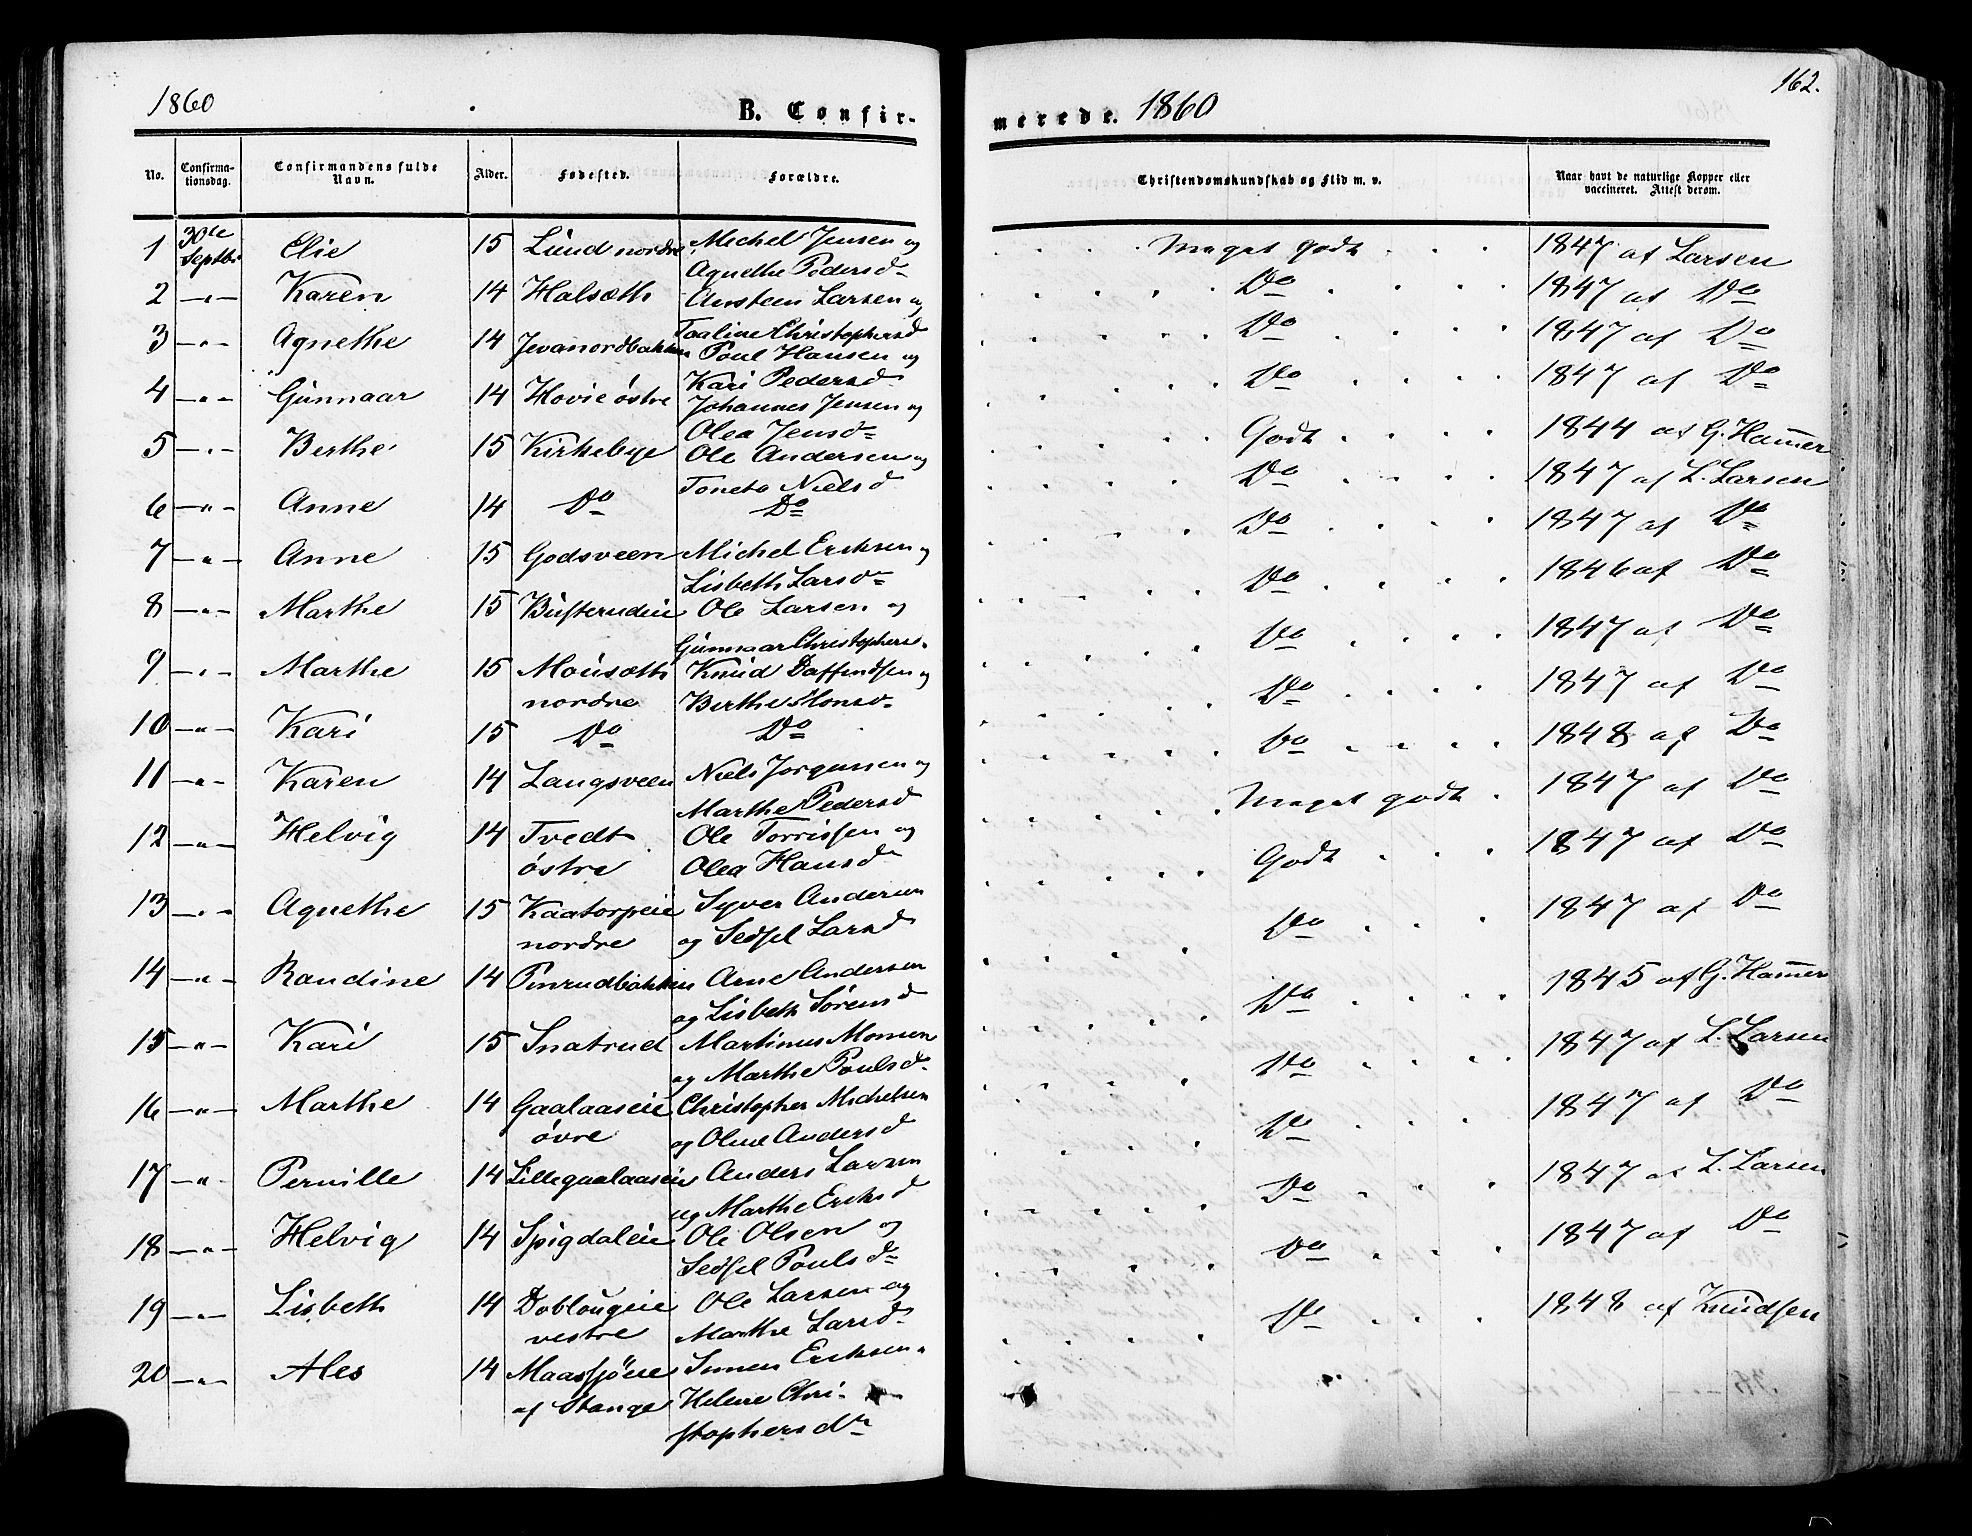 1860
B. Confir-
No. Confirma-tionsdag. Confirmandens fulde Navn. Alder. Fødested. Forældre.
1 30te Septbr Elie 15 Lund nordre Michel Jensen og
Agnethe Pedersd
2 —"— Karen 14 Halsæth Ansteen Larsen og
Taaline Christophersd
3 —"— Agnethe 14 Jevanordbakken Poul Hansen og
Kari Pedersd
4 —"— Gunnaar 14 Hovie østre Johannes Jensen og
Olea Jensd
5 —"— Berthe 15 Kirkebye Ole Andersen og
Toneta Nielsd
6 —"— Anne 14 Do Do
7 —"— Anne 15 Godsveen Michel Eriksen og
Lisbeth Larsd
8 —"— Marthe 15 Busterudeie Ole Larsen og
Gunnaar Christophers.
9 —"— Marthe 15 Mousæth Knud Daffindsen og
nordre Berthe Monsd
10 —"— Kari 15 Do Do
11 —"— Karen 14 Langsveen Niels Jørgensen og
Marthe Pedersd
12 —"— Helvig 14 Tvedt Ole Torrissen og
østre Olea Hansd
13 —"— Agnethe 15 Kaatorpeie Syver Andersen
nordre og Sedsel Larsd
14 —"— Randine 14 Pinrudbakken Arne Andersen
og Lisbeth Sørensd
15 —"— Kari 15 Snatrud Martinus Monsen
og Marthe Poulsd
16 —"— Marthe 14 Gaalaaseie Christopher Michelsen
øvre og Oline Andersd
17 —"— Pernille 14 Lillegaalaaseie Anders Larsen
og Marthe Eriksd
18 —"— Helvig 14 Spigdaleie Ole Olsen og
Sedsel Poulsd
19 —"— Lisbeth 14 Doblougeie Ole Larsen og
vestre Marthe Larsd
20 —"— Ales 14 Maassjøeie Simen Eriksen
af Stange Helene Chri-
stophersdr
162.
merede. 1860
Christendomskundskab og Flid m. v. Naar havt de naturlige Kopper eller vaccineret. Attest derom.
Meget godt 1847 af Larsen
Do 1847 af Do
Do 1847 af Do
Do 1847 af Do
Godt 1844 af G. Hammer
Do 1847 af L. Larsen
Do 1847 af Do
Do 1846 af Do
Do 1847 af Do
Do 1847 af Do
Do 1848 af Do
Meget godt 1847 af Do
Godt 1847 af Do
Do 1847 af Do
Do 1845 af G. Hammer
Do 1847 af L. Larsen
Do 1847 af Do
Do 1847 af L. Larsen
Do 1847 af Do
Do 1848 af Knudsen